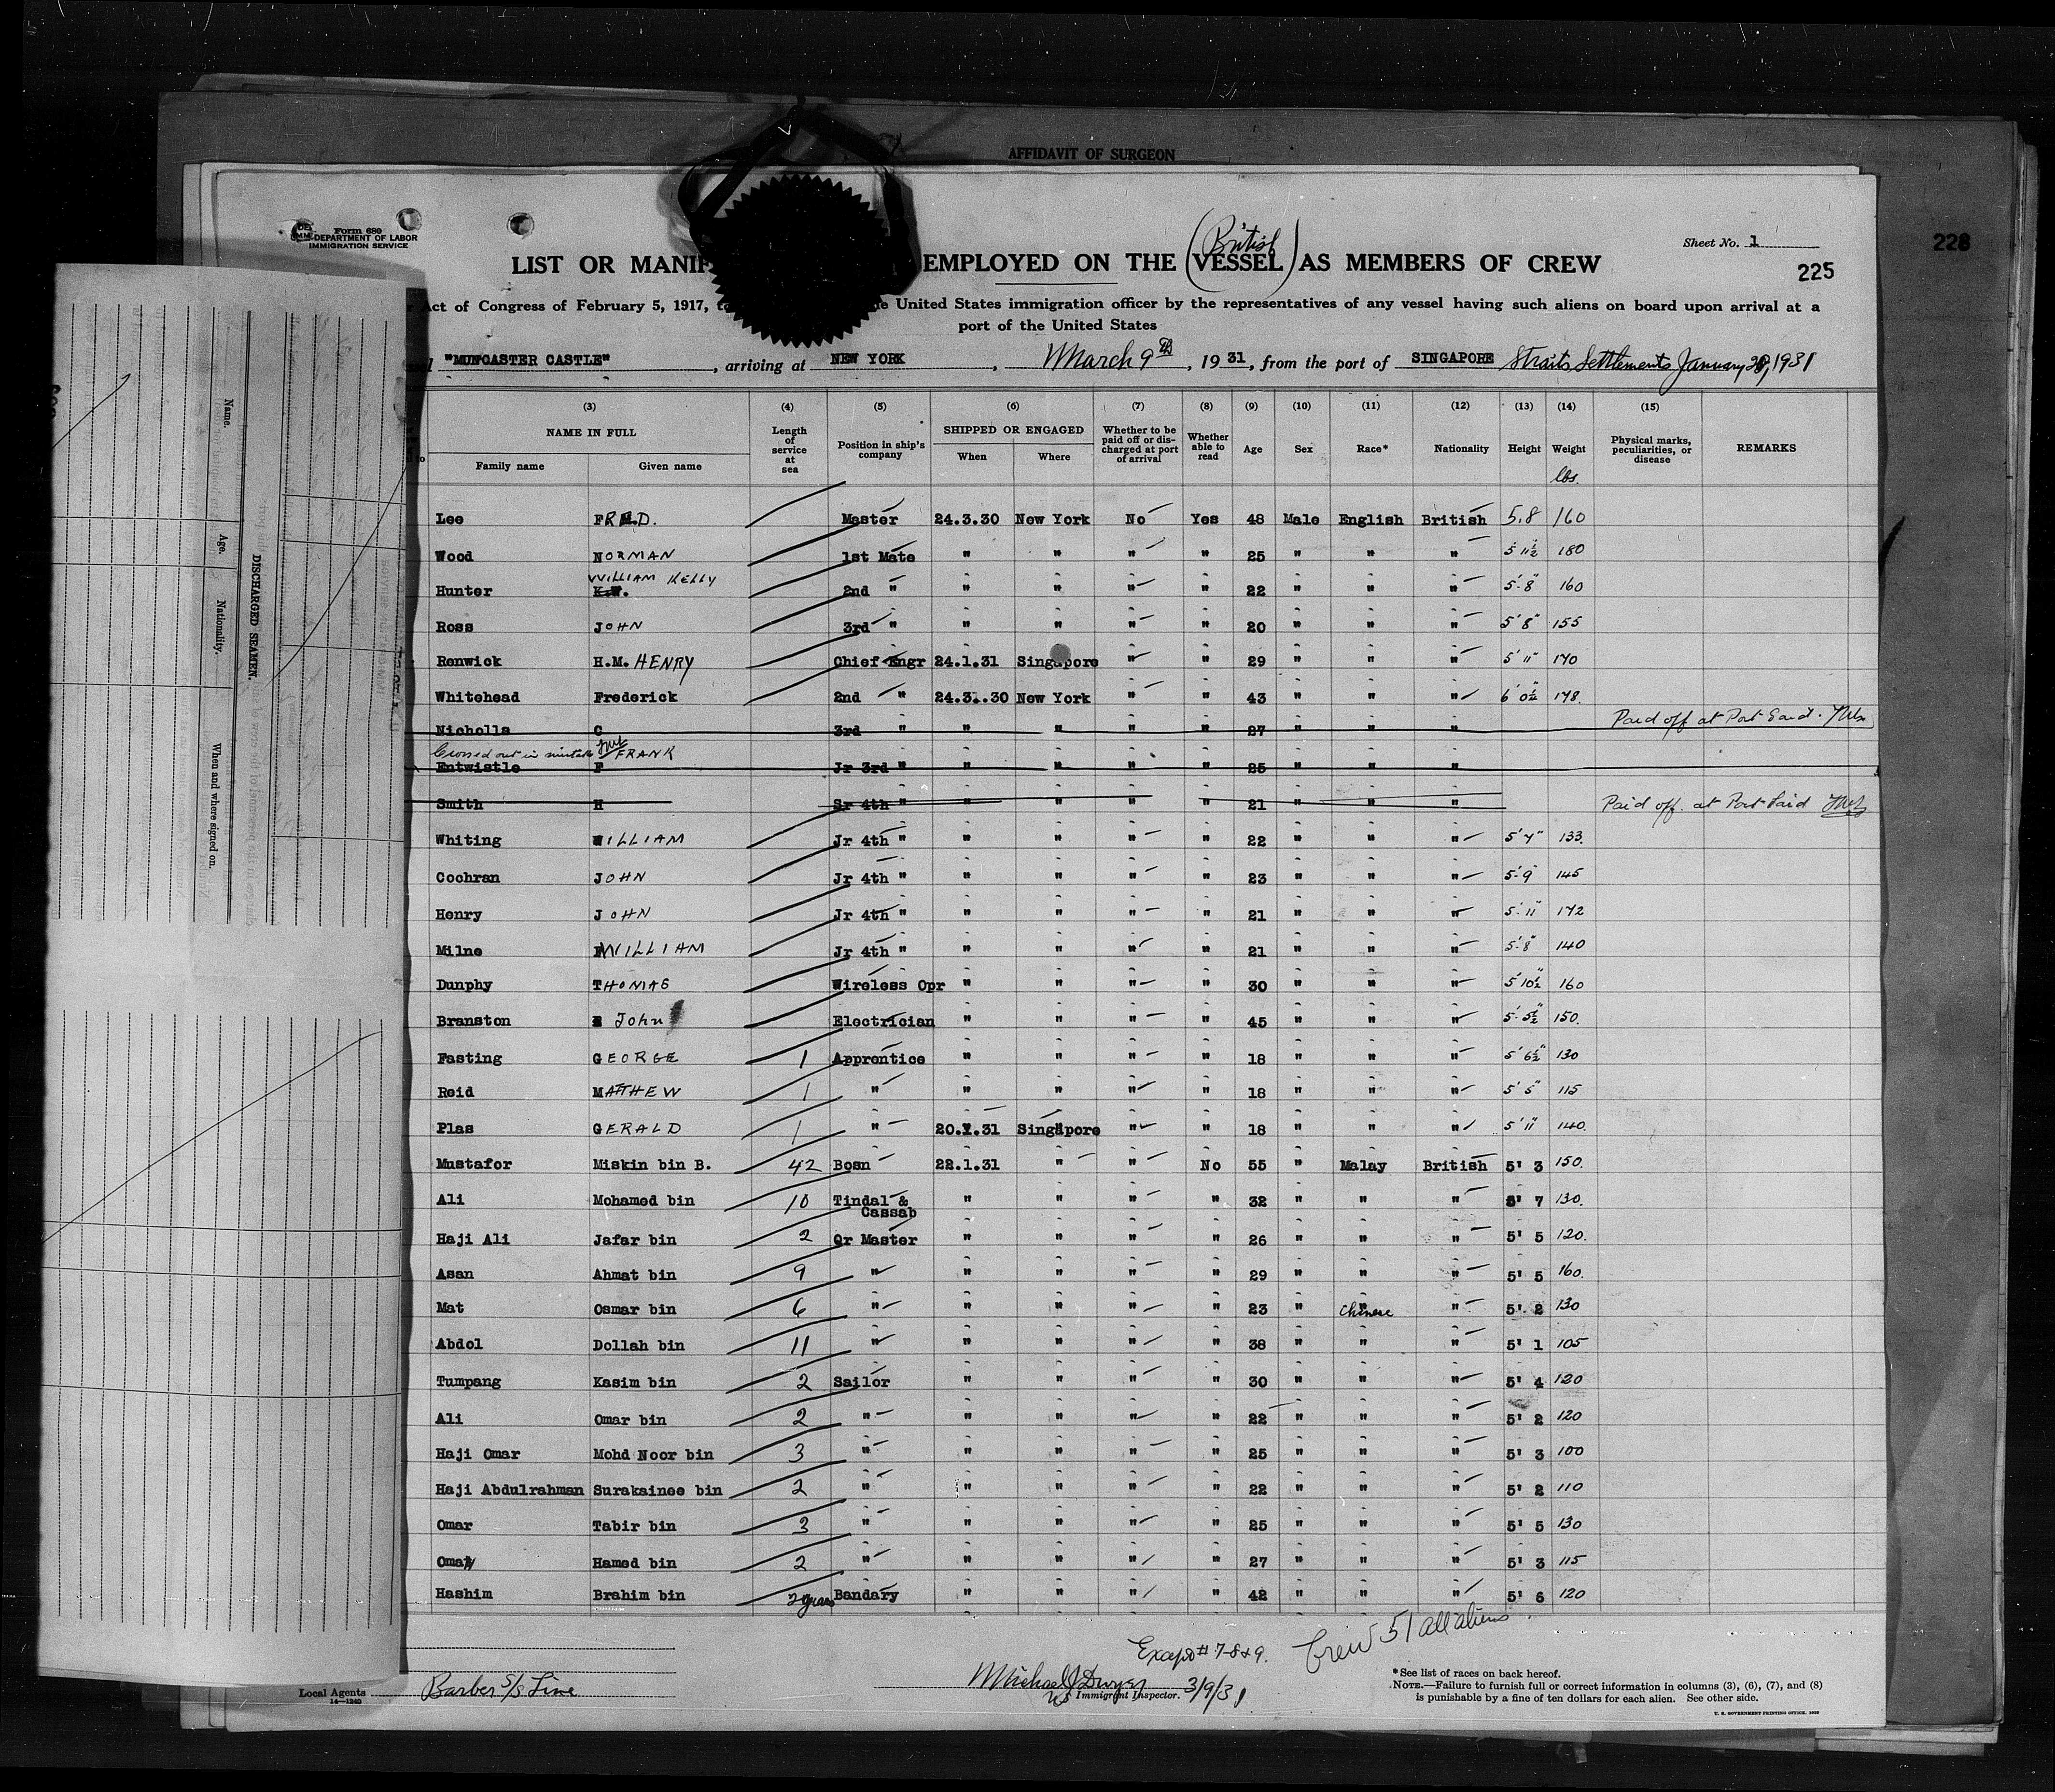 AFFIDAVIT OF SURGEON
Form 680
DEPARTMENT OF LABOR
IMMIGRATION SERVICE
Sheet No. 1
228
225
(British)
LIST OR MANIF EMPLOYED ON THE VESSEL AS MEMBERS OF CREW
Act of Congress of February 5, 1917, to United States immigration officer by the representatives of any vessel having such aliens on board upon arrival at a
port of the United States
"MUNCASTER CASTLE", arriving at NEW YORK, March 9th, 1931, from the port of SINGAPORE Straits Settlements January 1931
(3) (4) (5) (6) (7) (8) (9) (10) (11) (12) (13) (14) (15)
NAME IN FULL Length of service at sea Position in ship's company SHIPPED OR ENGAGED Whether to be paid off or discharged at port of arrival Whether able to read Age Sex Race* Nationality Height Weight Physical marks, peculiarities, or disease REMARKS
Family name Given name When Where
lbs.
Lee FRED. Master 24.3.30 New York No Yes 48 Male English British 5.8 160
Wood NORMAN 1st Mate " " " " 25 " " " 5 11½ 180
WILLIAM KELLY
Hunter K.W. 2nd " " " " " 22 " " " 5-8" 160
Ross JOHN 3rd " " " " " 20 " " " 5'8" 155
Renwick H.M. HENRY Chief Engr 24.1.31 Singapore " " 29 " " " 5'11" 170
Whitehead Frederick 2nd " 24.3.30 New York " " 43 " " " 6'0½ 178.
Nicholls C 3rd " " " " " 27 " " " Paid off at Port Said.
Crossed out in mistake FRANK
Entwistle F Jr 3rd " " " " " 25 " " "
Smith H Sr 4th " " " " " 21 " " " Paid off at Port Said
Whiting WILLIAM Jr 4th " " " " " 22 " " " 5'4" 133.
Cochran JOHN Jr 4th " " " " " 23 " " " 5-9" 145
Henry JOHN Jr 4th " " " " " 21 " " " 5'-11" 172
Milne WILLIAM Jr 4th " " " " " 21 " " " 5'-8" 140
Dunphy THOMAS Wireless Opr " " " " 30 " " " 5'10½" 160
Branston John Electrician " " " " 45 " " " 5'-5½" 150.
Fasting GEORGE 1 Apprentice " " " " 18 " " " 5'6½" 130
Reid MATTHEW 1 " " " " " 18 " " " 5'5" 115
Plas GERALD 1 " 20.1.31 Singapore " " 18 " " " 5'11" 140.
Mustafor Miskin bin B. 42 Bosn 22.1.31 " " No 55 " Malay British 5' 3 150.
Ali Mohamed bin 10 Tindal & Cassab " " " " 32 " " " 5' 7 130.
Haji Ali Jafar bin 2 Qr Master " " " " 26 " " " 5' 5 120.
Asan Ahmat bin 9 " " " " " 29 " " " 5' 5 160.
Mat Osmar bin 6 " " " " " 23 " Chinese " 5' 2 130
Abdol Dollah bin 11 " " " " " 38 " " " 5' 1 105
Tumpang Kasim bin 2 Sailor " " " " 30 " " " 5' 4 120
Ali Omar bin 2 " " " " " 22 " " " 5' 2 120
Haji Omar Mohd Noor bin 3 " " " " " 25 " " " 5' 3 100
Haji Abdulrahman Surakainee bin 2 " " " " " 22 " " " 5' 2 110
Omar Tabir bin 3 " " " " " 25 " " " 5' 5 130
Hamed bin 2 " " " " " 27 " " " 5' 3 115
Hashim Brahim bin 2 years Bandary " " " " 42 " " " 5' 6 120
Except # 7-8&9. Crew 51 all aliens
Local Agents Barber S/S Line
14—1240
Michael J Dwyer
US Immigrant Inspector. 3/9/31
*See list of races on back hereof.
NOTE.—Failure to furnish full or correct information in columns (3), (6), (7), and (8)
is punishable by a fine of ten dollars for each alien. See other side.
U. S. GOVERNMENT PRINTING OFFICE.
DISCHARGED SEAMEN.
Name. Age. Nationality. When and where signed on.